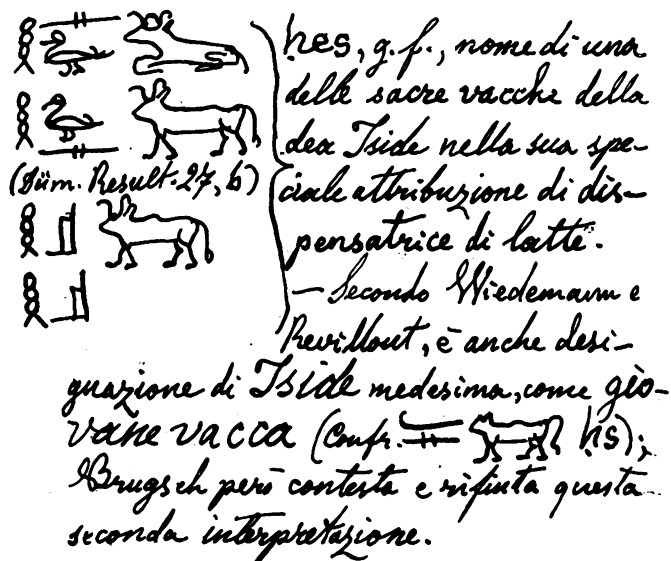 ḥes, g. f., nome di una
delle sacre vacche della
dea Iside nella sua spe-
(Düm. Result. 27, b) ciale attribuzione di dis-
pensatrice di latte.
— Secondo Wiedemann e
Revillout, è anche desi-
gnazione di Iside medesima, come gio-
vane vacca (Confr. ḥs);
Brugsch però contesta e rifiuta questa
seconda interpretazione.